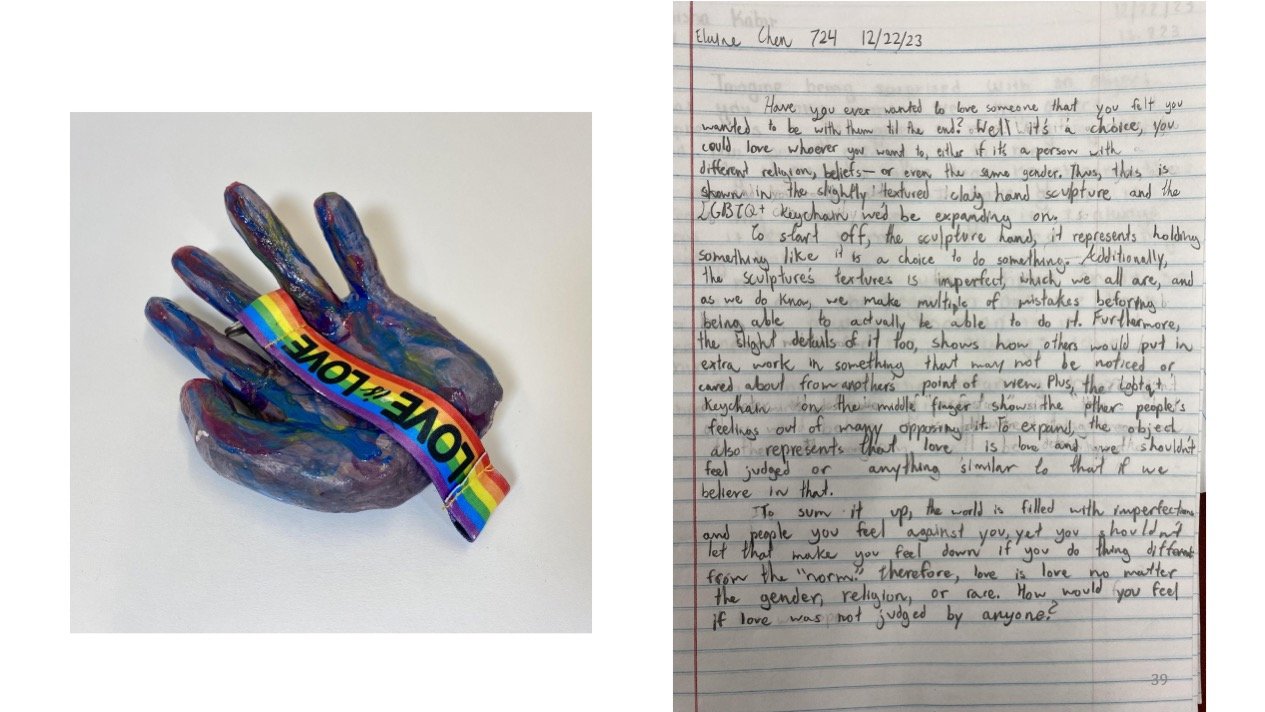 LOVE is LOVE
Elaine Chen 724 12/22/23
Have you ever wanted to love someone that you felt you
wanted to be with them til the end? Well it's a choice, you
could love whoever you want to, either if it's a person with
different religion, beliefs— or even the same gender. Thus, this is
shown in the slightly textured clay hand sculpture and the
LGBTQ+ keychain we'd be expanding on.
To start off, the sculpture hand, it represents holding
something like it is a choice to do something. Additionally,
the sculpture's textures is imperfect, which we all are, and
as we do know, we make multiple of mistakes beforing
being able to actually be able to do it. Furthermore,
the slight details of it too, shows how others would put in
extra work in something that may not be noticed or
cared about from anothers point of view. Plus, the Lgbtq+
keychain on the middle finger shows the other people's
feelings out of many opposing it. To expand, the object
also represents that love is love and we shouldn't
feel judged or anything similar to that if we
believe in that.
To sum it up, the world is filled with imperfections
and people you feel against you, yet you shouldn't
let that make you feel down if you do thing different
from the "norm." therefore, love is love no matter
the gender, religion, or race. How would you feel
if love was not judged by anyone?
39